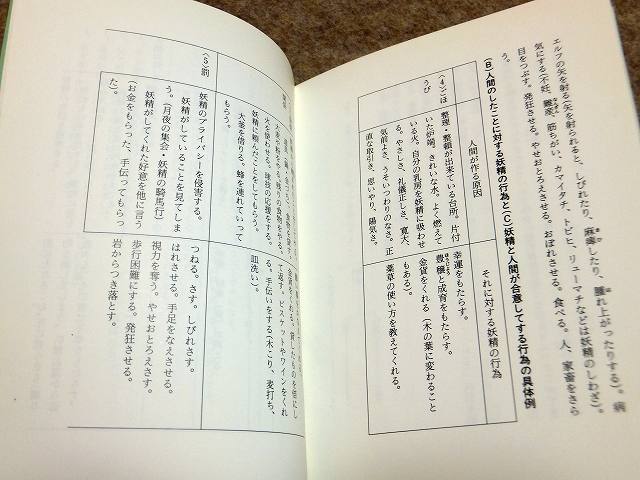 エルフの矢を射る(矢を射られると、しびれたり、麻痺したり、腫れ上がったりする)。病
気にする(不妊、難産、筋ちがい、カマイタチ、トビヒ、リューマチなどは妖精のしわざ)。
目をつぶす。発狂させる。やせおとろえさせる。おぼれさせる。食べる。人、家畜をさら
う。
(B)人間のしたことに対する妖精の行為と(C)妖精と人間が合意してする行為の具体例
人間が作る原因
それに対する妖精の行為
(4)ごほ
うび
整理・整頓が出来ている台所。片付
いた炉端。きれいな水。よく燃えて
いる火。自分の乳房を妖精に吸わせ
る。やさしさ、礼儀正しさ、寛大、
気前よさ、うそいつわりのなさ。正
直な取引き、思いやり、陽気さ。
幸運をもたらす。
豊穣と成育をもたらす。
金貨をくれる(木の葉に変わること
もある)。
薬草の使い方を教えてくれる。
火を使わせる。球技の応援をする。
妖精に頼んだことをしてもらう。
大釜を借りる、蜂を連れていって
もらう。
て返す。ビスケットやワインをくれ
る。手伝いをする(木こり、麦打ち、
皿洗い)。
(5)罰
妖精のプライバシーを侵害する。
妖精がしていることを見てしま
う。(月夜の集会・妖精の騎馬行)
妖精がしてくれた好意を他に言う
(お金をもらった、手伝ってもらっ
た)。
つねる。さす。しびれさす。
はれさせる。手足をなえさせる。
視力を奪う。やせおとろえさす。
歩行困難にする。発狂させる。
岩からつき落とす。